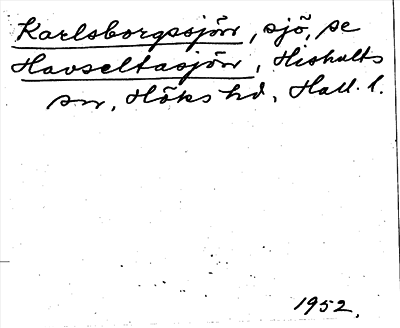 Karlsborgssjön, sjö, se
Havseltasjön, Hishults
sn, Höks hd, Hall. l.
1952.